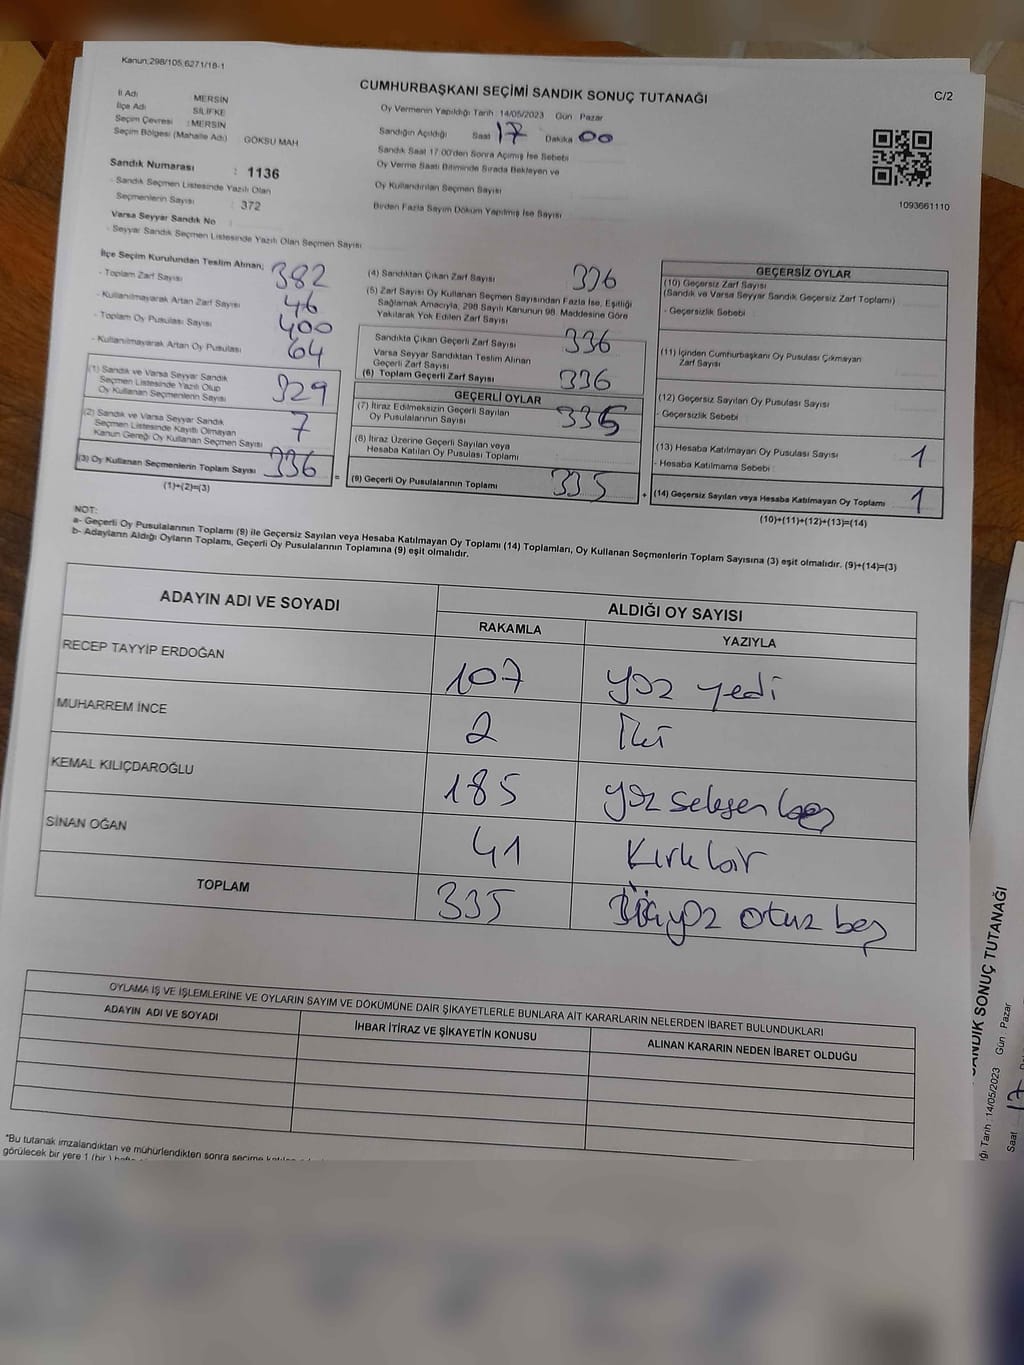 Kanun:298/105;6271/18-1
CUMHURBAŞKANI SEÇİMİ SANDIK SONUÇ TUTANAĞI
C/2
İl Adı : MERSİN
İlçe Adı : SİLİFKE
Seçim Çevresi : MERSİN
Seçim Bölgesi (Mahalle Adı) GÖKSU MAH
Oy Vermenin Yapıldığı Tarih : 14/05/2023 Gün : Pazar
Sandığın Açıldığı Saat 17 Dakika 00
Sandık Saat 17.00'den Sonra Açılmış İse Sebebi
Oy Verme Saati Bitiminde Sırada Bekleyen ve
Oy Kullandırılan Seçmen Sayısı
Birden Fazla Sayım Döküm Yapılmış İse Sayısı
1093661110
Sandık Numarası : 1136
- Sandık Seçmen Listesinde Yazılı Olan
Seçmenlerin Sayısı : 372
Varsa Seyyar Sandık No
- Seyyar Sandık Seçmen Listesinde Yazılı Olan Seçmen Sayısı
İlçe Seçim Kurulundan Teslim Alınan;
- Toplam Zarf Sayısı 382
- Kullanılmayarak Artan Zarf Sayısı 46
- Toplam Oy Pusulası Sayısı 400
- Kullanılmayarak Artan Oy Pusulası 64
(1) Sandık ve Varsa Seyyar Sandık
Seçmen Listesinde Yazılı Olup
Oy Kullanan Seçmenlerin Sayısı 329
(2) Sandık ve Varsa Seyyar Sandık
Seçmen Listesinde Kayıtlı Olmayan
Kanun Gereği Oy Kullanan Seçmen Sayısı 7
(3) Oy Kullanan Seçmenlerin Toplam Sayısı 336
(1)+(2)=(3)
=
(4) Sandıktan Çıkan Zarf Sayısı 336
(5) Zarf Sayısı Oy Kullanan Seçmen Sayısından Fazla İse, Eşitliği
Sağlamak Amacıyla, 298 Sayılı Kanunun 98. Maddesine Göre
Yakılarak Yok Edilen Zarf Sayısı
Sandıkta Çıkan Geçerli Zarf Sayısı 336
Varsa Seyyar Sandıktan Teslim Alınan
Geçerli Zarf Sayısı
(6) Toplam Geçerli Zarf Sayısı 336
GEÇERLİ OYLAR
(7) İtiraz Edilmeksizin Geçerli Sayılan
Oy Pusulalarının Sayısı 335
(8) İtiraz Üzerine Geçerli Sayılan veya
Hesaba Katılan Oy Pusulası Toplamı
(9) Geçerli Oy Pusulalarının Toplamı 335
+
GEÇERSİZ OYLAR
(10) Geçersiz Zarf Sayısı
(Sandık ve Varsa Seyyar Sandık Geçersiz Zarf Toplamı)
- Geçersizlik Sebebi
(11) İçinden Cumhurbaşkanı Oy Pusulası Çıkmayan
Zarf Sayısı
(12) Geçersiz Sayılan Oy Pusulası Sayısı
- Geçersizlik Sebebi
(13) Hesaba Katılmayan Oy Pusulası Sayısı 1
- Hesaba Katılmama Sebebi
(14) Geçersiz Sayılan veya Hesaba Katılmayan Oy Toplamı 1
(10)+(11)+(12)+(13)=(14)
NOT:
a- Geçerli Oy Pusulalarının Toplamı (9) ile Geçersiz Sayılan veya Hesaba Katılmayan Oy Toplamı (14) Toplamları, Oy Kullanan Seçmenlerin Toplam Sayısına (3) eşit olmalıdır. (9)+(14)=(3)
b- Adayların Aldığı Oyların Toplamı, Geçerli Oy Pusulalarının Toplamına (9) eşit olmalıdır.
ADAYIN ADI VE SOYADI ALDIĞI OY SAYISI
RAKAMLA YAZIYLA
RECEP TAYYİP ERDOĞAN 107 yüz yedi
MUHARREM İNCE 2 İki
KEMAL KILIÇDAROĞLU 185 yüz seksen beş
SİNAN OĞAN 41 Kırk bir
TOPLAM 335 üçyüz otuz beş
OYLAMA İŞ VE İŞLEMLERİNE VE OYLARIN SAYIM VE DÖKÜMÜNE DAİR ŞİKAYETLERLE BUNLARA AİT KARARLARIN NELERDEN İBARET BULUNDUKLARI
ADAYIN ADI VE SOYADI İHBAR İTİRAZ VE ŞİKAYETİN KONUSU ALINAN KARARIN NEDEN İBARET OLDUĞU
*Bu tutanak imzalandıktan ve mühürlendikten sonra seçime
görülecek bir yere 1 (bir)
SANDIK SONUÇ TUTANAĞI
Tarih : 14/05/2023 Gün : Pazar
Saat 17